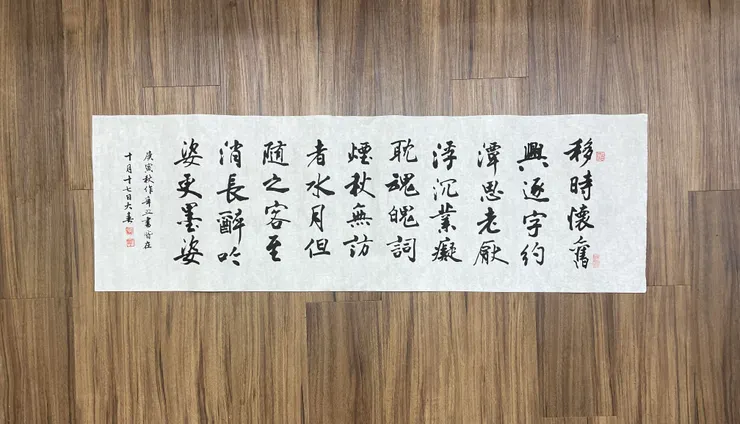 移時懷舊
興逐字約
潭思老厭
浮沉業癡
耽魂魄詞
煙秋無訪
者水月但
隨之客至
消長醉吟
姿更墨姿
庚寅秋作
十月十七日大